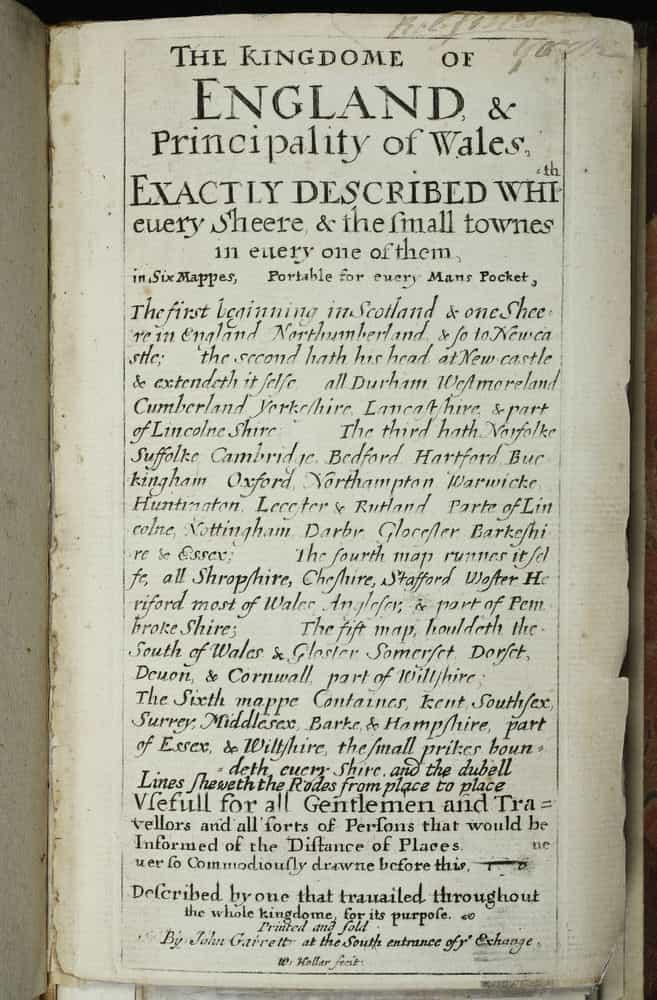 THE KINGDOME OF
ENGLAND, &
Principality of Wales,
EXACTLY DESCRIBED WHITH
euery Sheere, & the ſmall townes
in euery one of them,
in Six Mappes, Portable for euery Mans Pocket,
The first beginning in Scotland & one Shee=
re in England Northumberland, & ſo to Newca
stle; the second hath his head at New castle
& extendeth it ſelfe all Durham, Weſtmoreland
Cumberland Yorkeſhire, Lancaſhire, & part
of Lincolne Shire; The third hath Norfolke
Suffolke Cambridje, Bedford Hartford Buc
kingham Oxford, Northampton Warwicke,
Huntington, Leceſter & Rutland Parte of Lin
colne, Nottingham, Darby Gloceſter Barkeſhi
re & Essex; The fourth map runnes it ſel
fe, all Shropſhire, Cheſhire, Stafford Woſter He
riford most of Wales Angleſey, & part of Pem
broke Shire; The fift map, houldeth the
South of Wales & Gloſter Somerset, Dorſet,
Deuon, & Cornwall, part of Wiltſhire;
The Sixth mappe Containes, kent, Southſex,
Surrey, Middleſex, Barke, & Hampſhire, part
of Essex, & Wiltſhire, the ſmall prikes boun=
=deth euery Shire, and the dubell
Lines ſheweth the Rodes from place to place
Vſefull for all Gentlemen and Tra=
vellors and all ſorts of Perſons that would be
Informed of the Diſtance of Places. ne
uer ſo Commodiouſly drawne before this,
Deſcribed by one that trauailed throughout
the whole kingdome, for its purpose.
Printed and ſold
By John Garrett at the South entrance of yᵉ Exchange,
W: Hollar fecit: